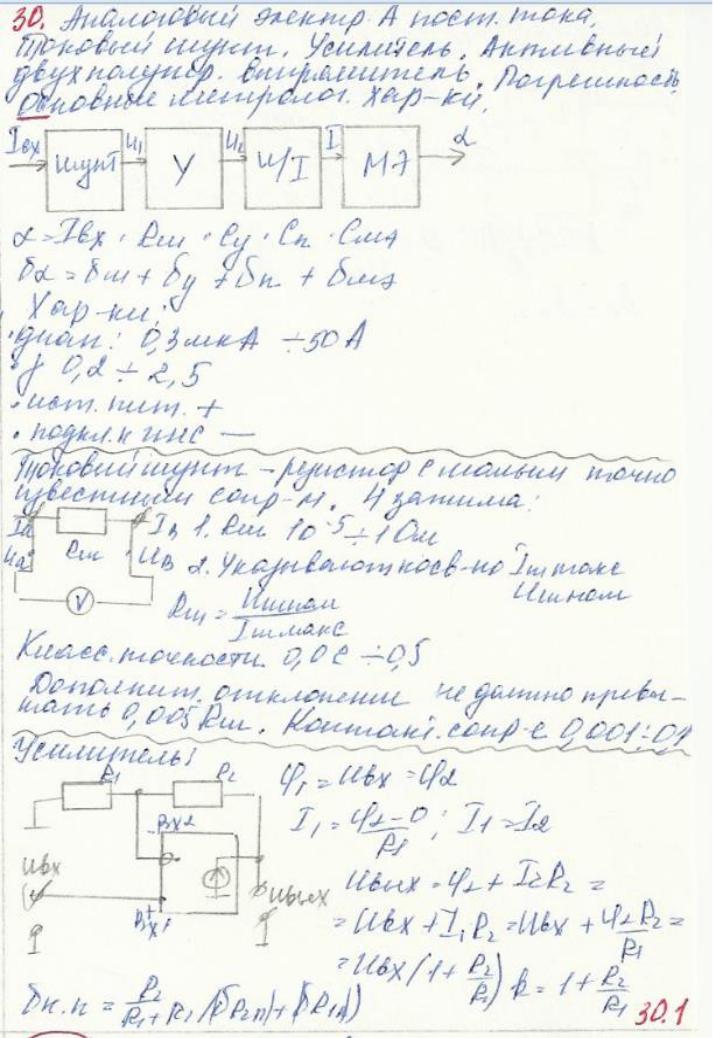 30. Аналоговый электр. А пост. тока.
Токовый шунт. Усилитель. Активный
двухполупер. выпрямитель. Погрешность
Основные метролог. хар-ки.
Iвх Шунт U1 У U2 U/I I МЭ α
α = Iвх · Rш · Cу · Cп · Cмэ
δα = δш + δу + δп + δмэ
Хар-ки:
· диап: 0,3 мкА ÷ 50 А
· γ 0,2 ÷ 2,5
· ист. пит. +
· подкл. к ИИС —
Токовый шунт – резистор с малым точно
известным сопр-м. 4 зажима:
1. Rш 10^-5 ÷ 1 Ом
V
2. Указывают Iш макс
Uш ном
Rш = Uш ном / Iш макс
Класс. точности 0,02 ÷ 0,5
Дополнит. отклонение не должно превы-
шать 0,005 Rш. Контакт. сопр-е 0,001 ÷ 0,1
Усилитель:
R1 R2 φ1 = Uвх = φ2
I1 = (φ2 – 0)/R1 ; I1 = I2
Uвх Uвых
Uвых = φ2 + I2R2 =
= Uвх + I1R2 = Uвх + φ2R2/R1 =
= Uвх (1 + R2/R1) k = 1 + R2/R1
30.1